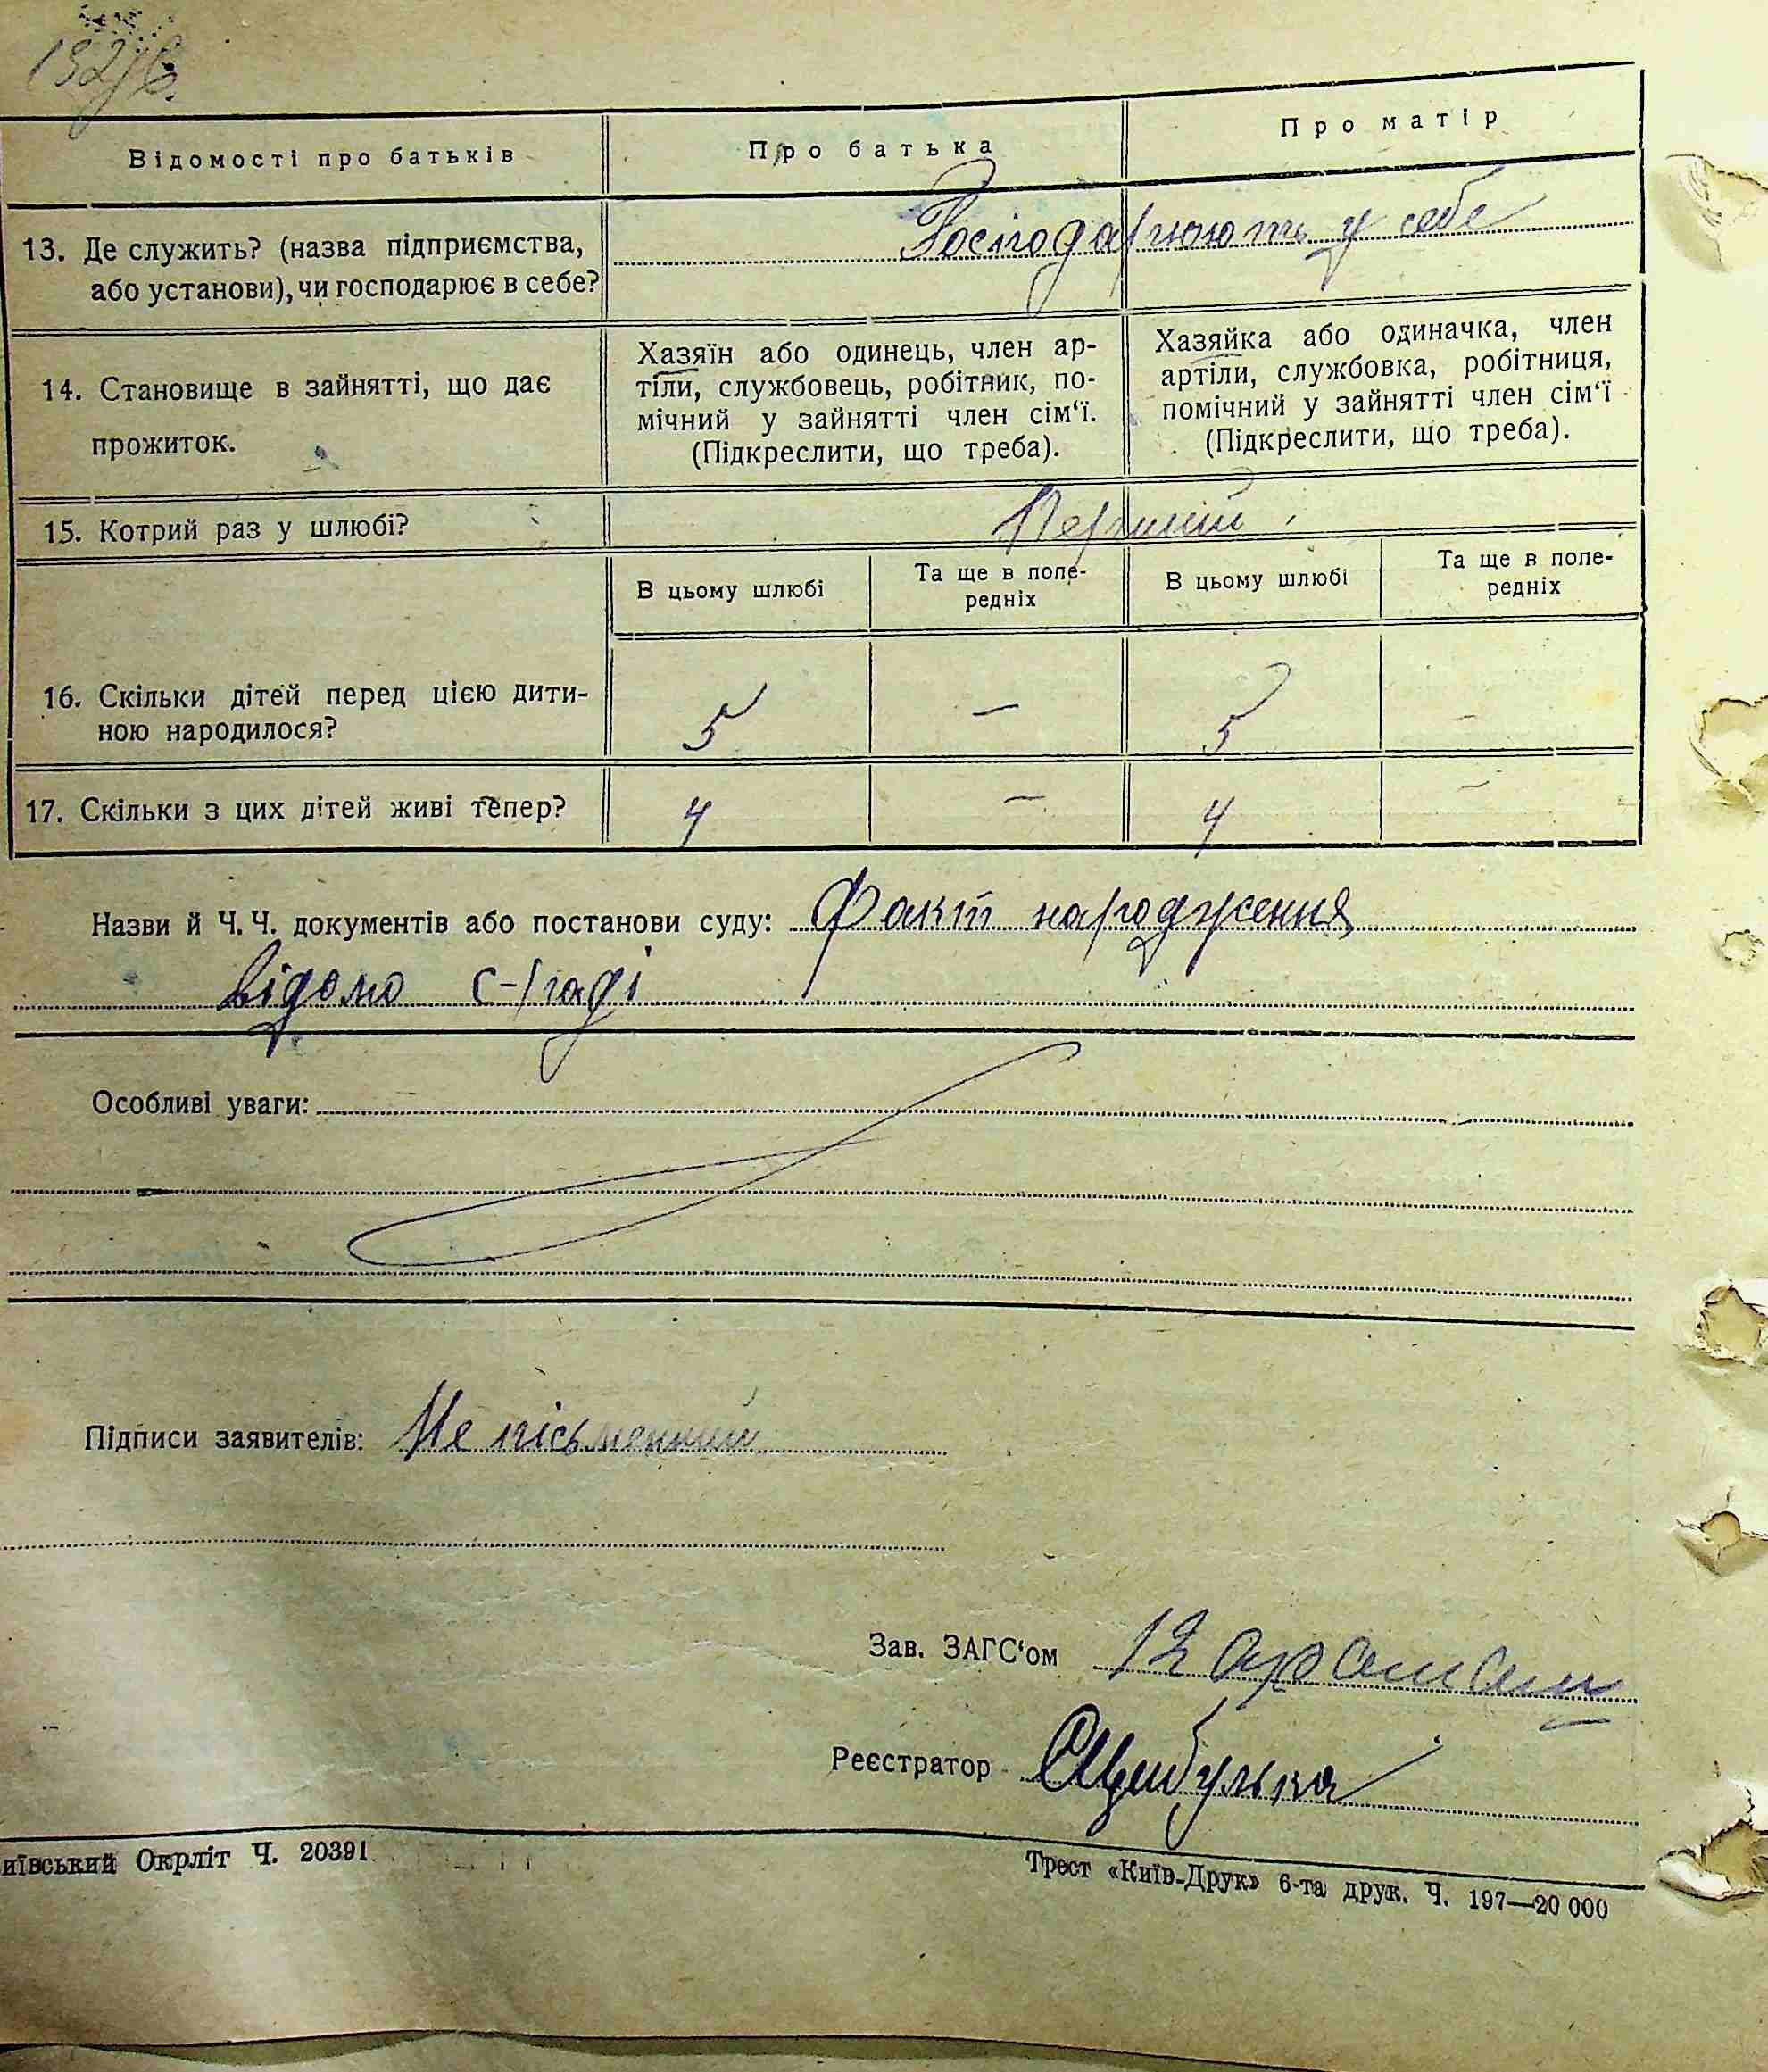 Відомості про батьків
Про батька
Про матір
13. Де служить? (назва підприємства,
або установи), чи господарює в себе?
Господарюють у себе
14. Становище в зайнятті, що дає
прожиток.
Хазяїн або одинець, член ар-
тіли, службовець, робітник, по-
мічний у зайнятті член сім‘ї.
(Підкреслити, що треба).
Хазяйка або одиначка, член
артіли, службовка, робітниця,
помічний у зайнятті член сім‘ї
(Підкреслити, що треба).
15. Котрий раз у шлюбі?
Перший
В цьому шлюбі
Та ще в попе-
редніх
В цьому шлюбі
Та ще в попе-
редніх
16. Скільки дітей перед цією дити-
ною народилося?
5 — 5 —
17. Скільки з цих дітей живі тепер?
4 — 4 —
Назви й Ч. Ч. документів або постанови суду: Факт народження
відомо с-раді
Особливі уваги:
Підписи заявителів: Не пісьменний
Зав. ЗАГС‘ом
Реєстратор Цибулька
иївський Окрліт Ч. 20391
Трест «Київ-Друк» 6-та друк. Ч. 197—20 000